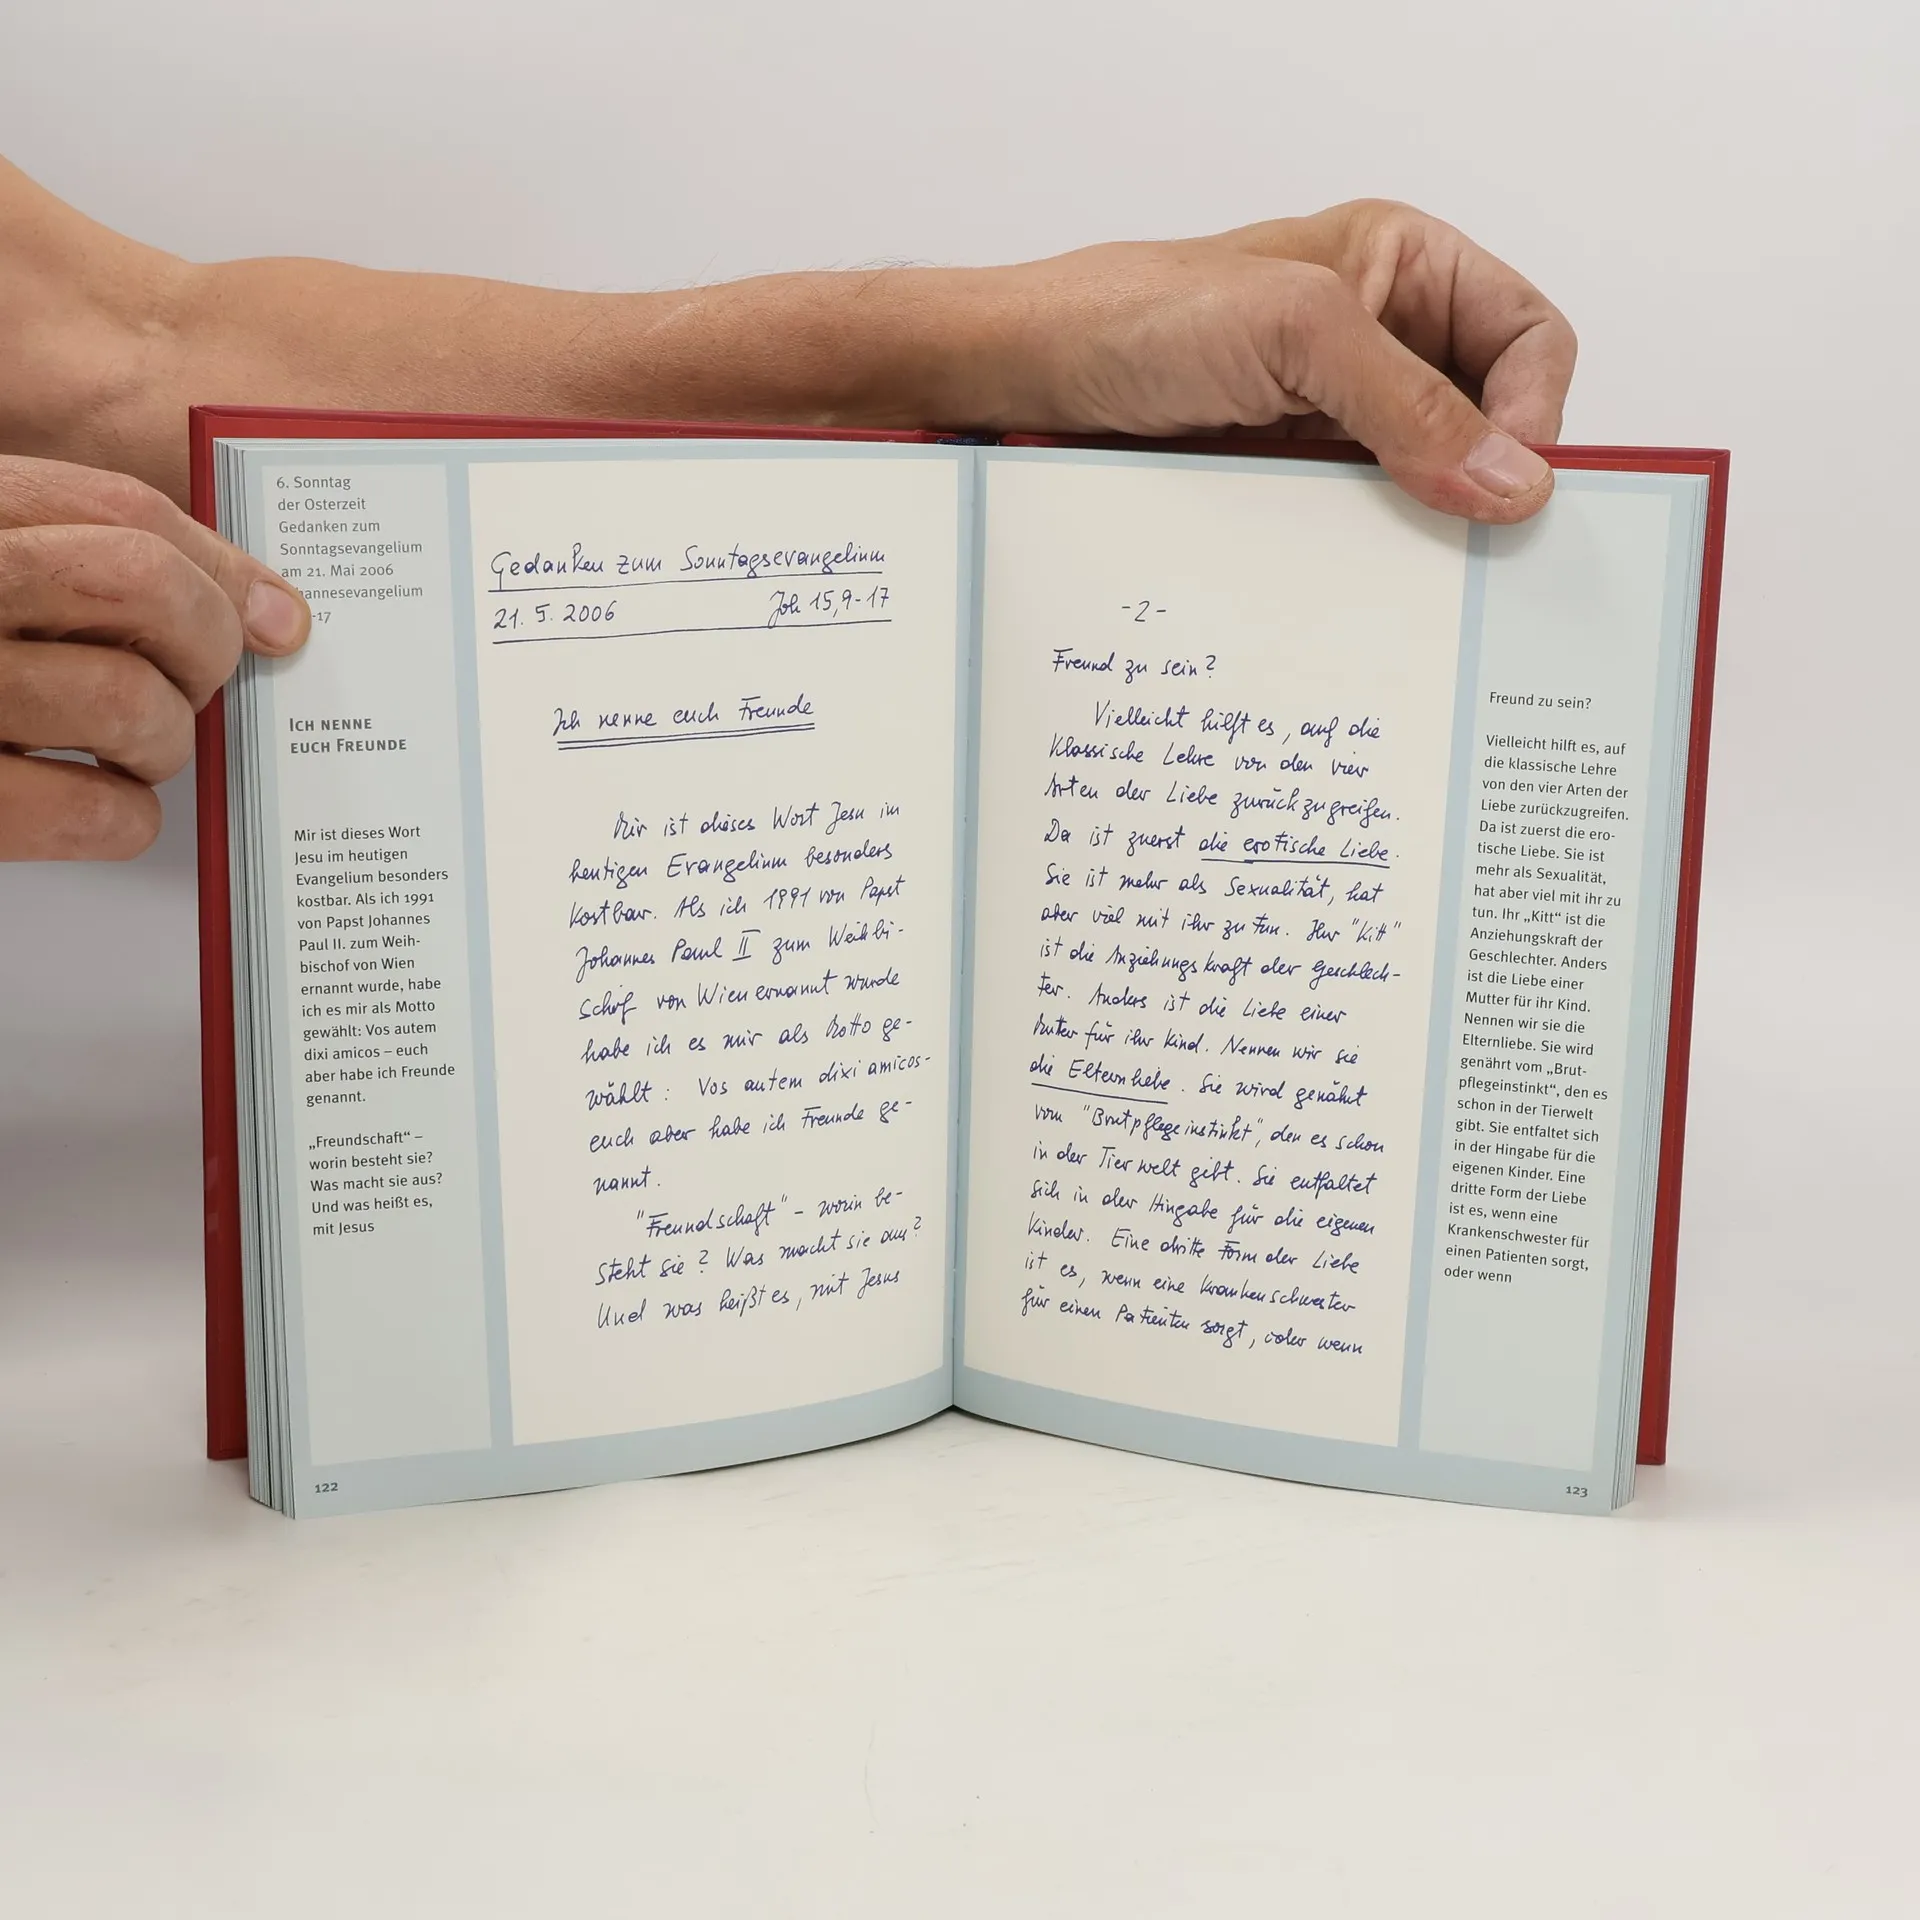 6. Sonntag
der Osterzeit
Gedanken zum
Sonntagsevangelium
am 21. Mai 2006
hannesevangelium
-17
ICH NENNE
EUCH FREUNDE
Mir ist dieses Wort
Jesu im heutigen
Evangelium besonders
kostbar. Als ich 1991
von Papst Johannes
Paul II. zum Weih-
bischof von Wien
ernannt wurde, habe
ich es mir als Motto
gewählt: Vos autem
dixi amicos – euch
aber habe ich Freunde
genannt.
„Freundschaft“ –
worin besteht sie?
Was macht sie aus?
Und was heißt es,
mit Jesus
122
Gedanken zum Sonntagsevangelium
21. 5. 2006 Joh 15,9-17
Ich nenne euch Freunde
Mir ist dieses Wort Jesu im
heutigen Evangelium besonders
kostbar. Als ich 1991 von Papst
Johannes Paul II zum Weihbi-
schof von Wien ernannt wurde
habe ich es mir als Motto ge-
wählt: Vos autem dixi amicos-
euch aber habe ich Freunde ge-
nannt.
"Freundschaft" - worin be-
steht sie? Was macht sie aus?
Und was heißt es, mit Jesus
-2-
Freund zu sein?
Vielleicht hilft es, auf die
klassische Lehre von den vier
Arten der Liebe zurückzugreifen.
Da ist zuerst die erotische Liebe.
Sie ist mehr als Sexualität, hat
aber viel mit ihr zu tun. Ihr "Kitt"
ist die Anziehungskraft der Geschlech-
ter. Anders ist die Liebe einer
Mutter für ihr Kind. Nennen wir sie
die Elternliebe. Sie wird genährt
vom "Brutpflegeinstinkt", den es schon
in der Tierwelt gibt. Sie entfaltet
sich in der Hingabe für die eigenen
Kinder. Eine dritte Form der Liebe
ist es, wenn eine Krankenschwester
für einen Patienten sorgt, oder wenn
Freund zu sein?
Vielleicht hilft es, auf
die klassische Lehre
von den vier Arten der
Liebe zurückzugreifen.
Da ist zuerst die ero-
tische Liebe. Sie ist
mehr als Sexualität,
hat aber viel mit ihr zu
tun. Ihr „Kitt“ ist die
Anziehungskraft der
Geschlechter. Anders
ist die Liebe einer
Mutter für ihr Kind.
Nennen wir sie die
Elternliebe. Sie wird
genährt vom „Brut-
pflegeinstinkt“, den es
schon in der Tierwelt
gibt. Sie entfaltet sich
in der Hingabe für die
eigenen Kinder. Eine
dritte Form der Liebe
ist es, wenn eine
Krankenschwester für
einen Patienten sorgt,
oder wenn
123